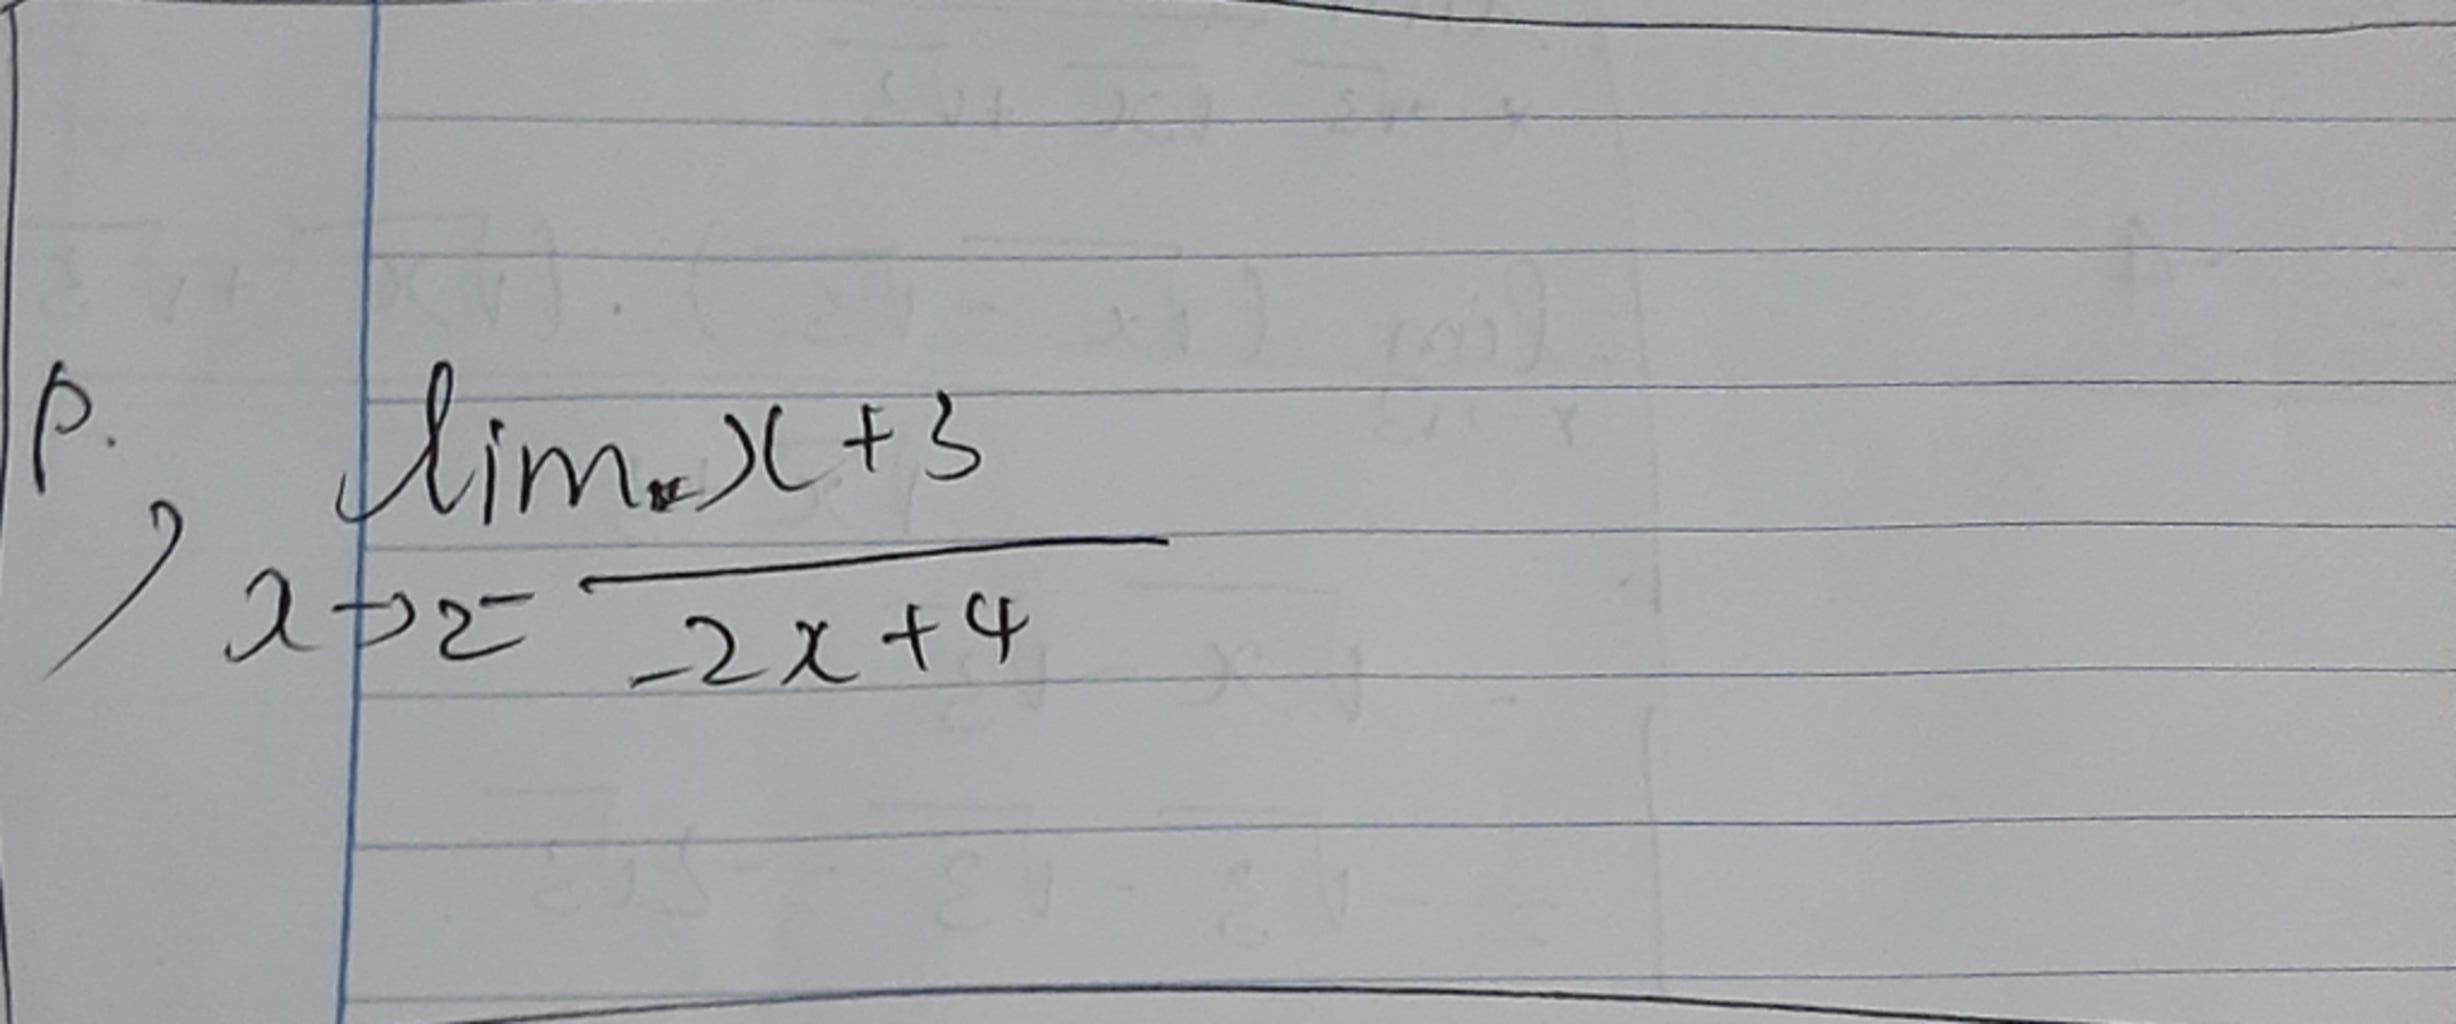 p. lim x+3
, x→2⁻ -2x+4